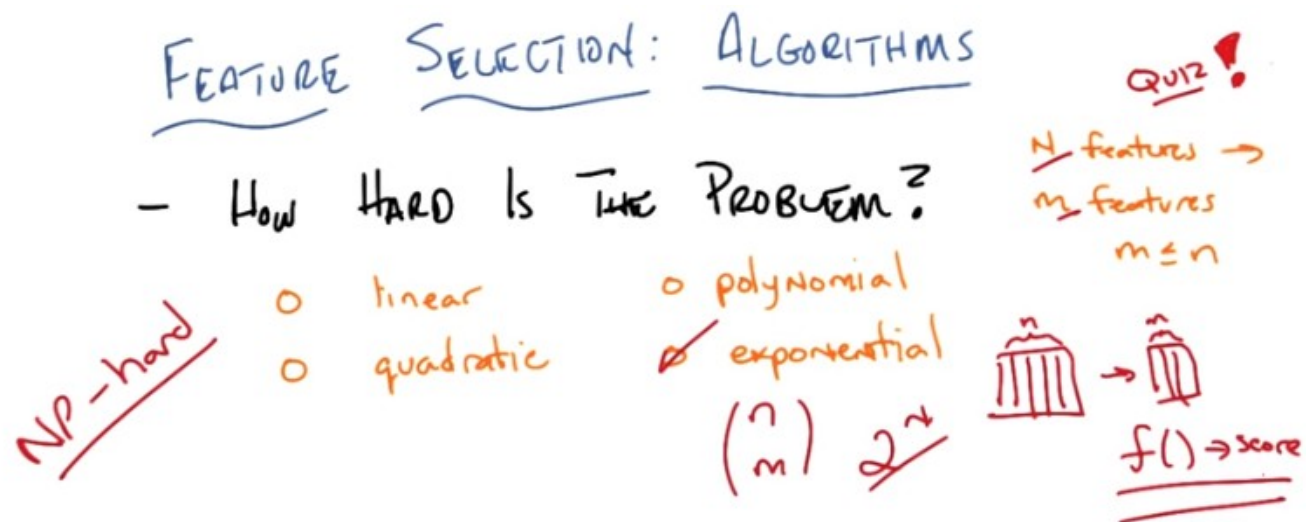 FEATURE SELECTION: ALGORITHMS
QUIZ!
N features →
m features
m ≤ n
- HOW HARD IS THE PROBLEM?
○ linear
○ polynomial
○ quadratic
○ exponential
NP-hard
n → m
(n m) 2^n
f() → score